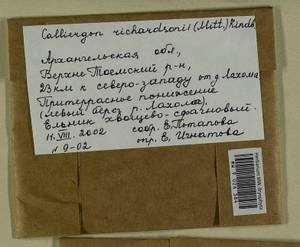 Calliergon richardsonii (Mitt.) Kindb.
Архангельская обл.,
Верхне-Тоемский р-н,
23 км к северо-западу от д. Лахома
Притеррасное понижение
(левый берег р. Лахома).
Ельник хвощево-сфагновый.
11.VIII.2002 собр. Е. Потапова
№ 9-02 опр. Е. Игнатова